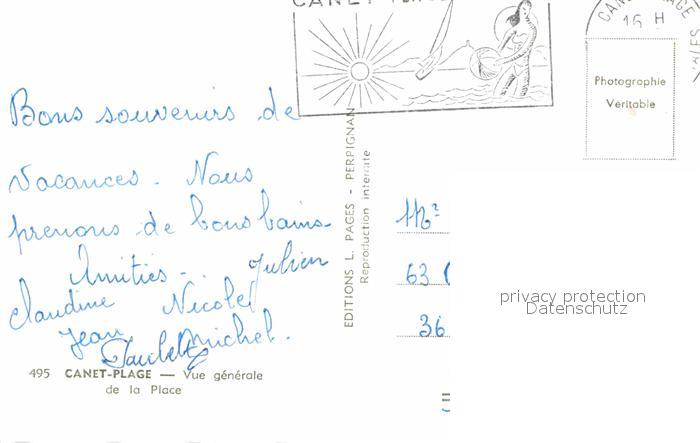 CANET PLAGE
CANET-PLAGE
16 H
Photographie
Véritable
Bons souvenirs de
vacances. Nous
prenons de bons bains
Amitiés.. Julien
Claudine Nicole
Jean Michel.
EDITIONS L. PAGES - PERPIGNAN
Reproduction interdite
Mr
63
36
privacy protection
Datenschutz
495 CANET-PLAGE — Vue générale
de la Place